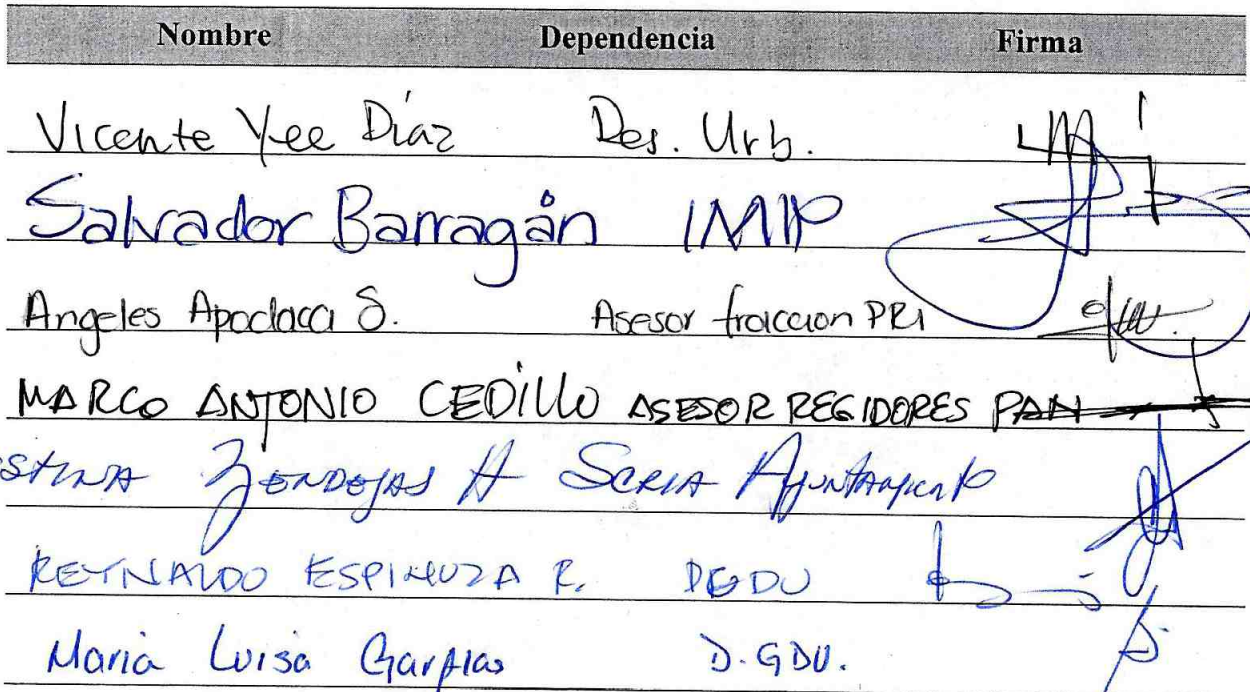 Nombre Dependencia Firma
Vicente Yee Díaz Des. Urb.
Salvador Barragán IMIP
Angeles Apodaca S. Asesor fraccion PRI
MARCO ANTONIO CEDILLO ASESOR REGIDORES PAN
ZENDEJAS A SCRIA Ayuntamiento
REYNALDO ESPINOZA R. DGDU
Maria Luisa D.GDU.